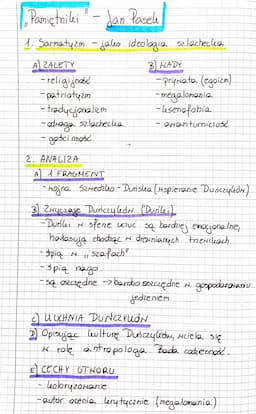 „Pamiętniki" – Jan Pasek
1. Sarmatyzm – jako ideologia szlachecka
A) ZALETY B) WADY
- religijność - prywata (egoizm)
- patriotyzm - megalomania
- tradycjonalizm - ksenofobia
- odwaga szlachecka - awanturniczość
- gościnność
2. ANALIZA
A) 1 FRAGMENT
- wojna Szwedzko-Duńska (wspieranie Duńczyków)
B) Zwyczaje Duńczyków (Duńki)
- Duńki w sferze uczuć są bardziej emocjonalne,
hałasują chodząc w drewnianych trzewikach
- śpią w „szafach"
- śpią nago
- są oszczędne → bardzo oszczędne w gospodarowaniu
jedzeniem
C) KUCHNIA DUŃCZYKÓW
D) Opisując kulturę Duńczyków, wciela się
w rolę antropologa. Bada codzienność.
E) CECHY UTWORU
- koloryzowanie
- autor ocenia krytycznie (megalomania)